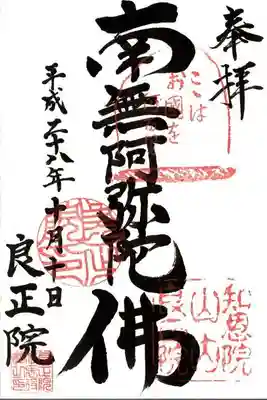 奉拝
ここは
お國を
南無阿弥陀佛
平成二十八年十月十日
良正院
知恩院
山内
良正院